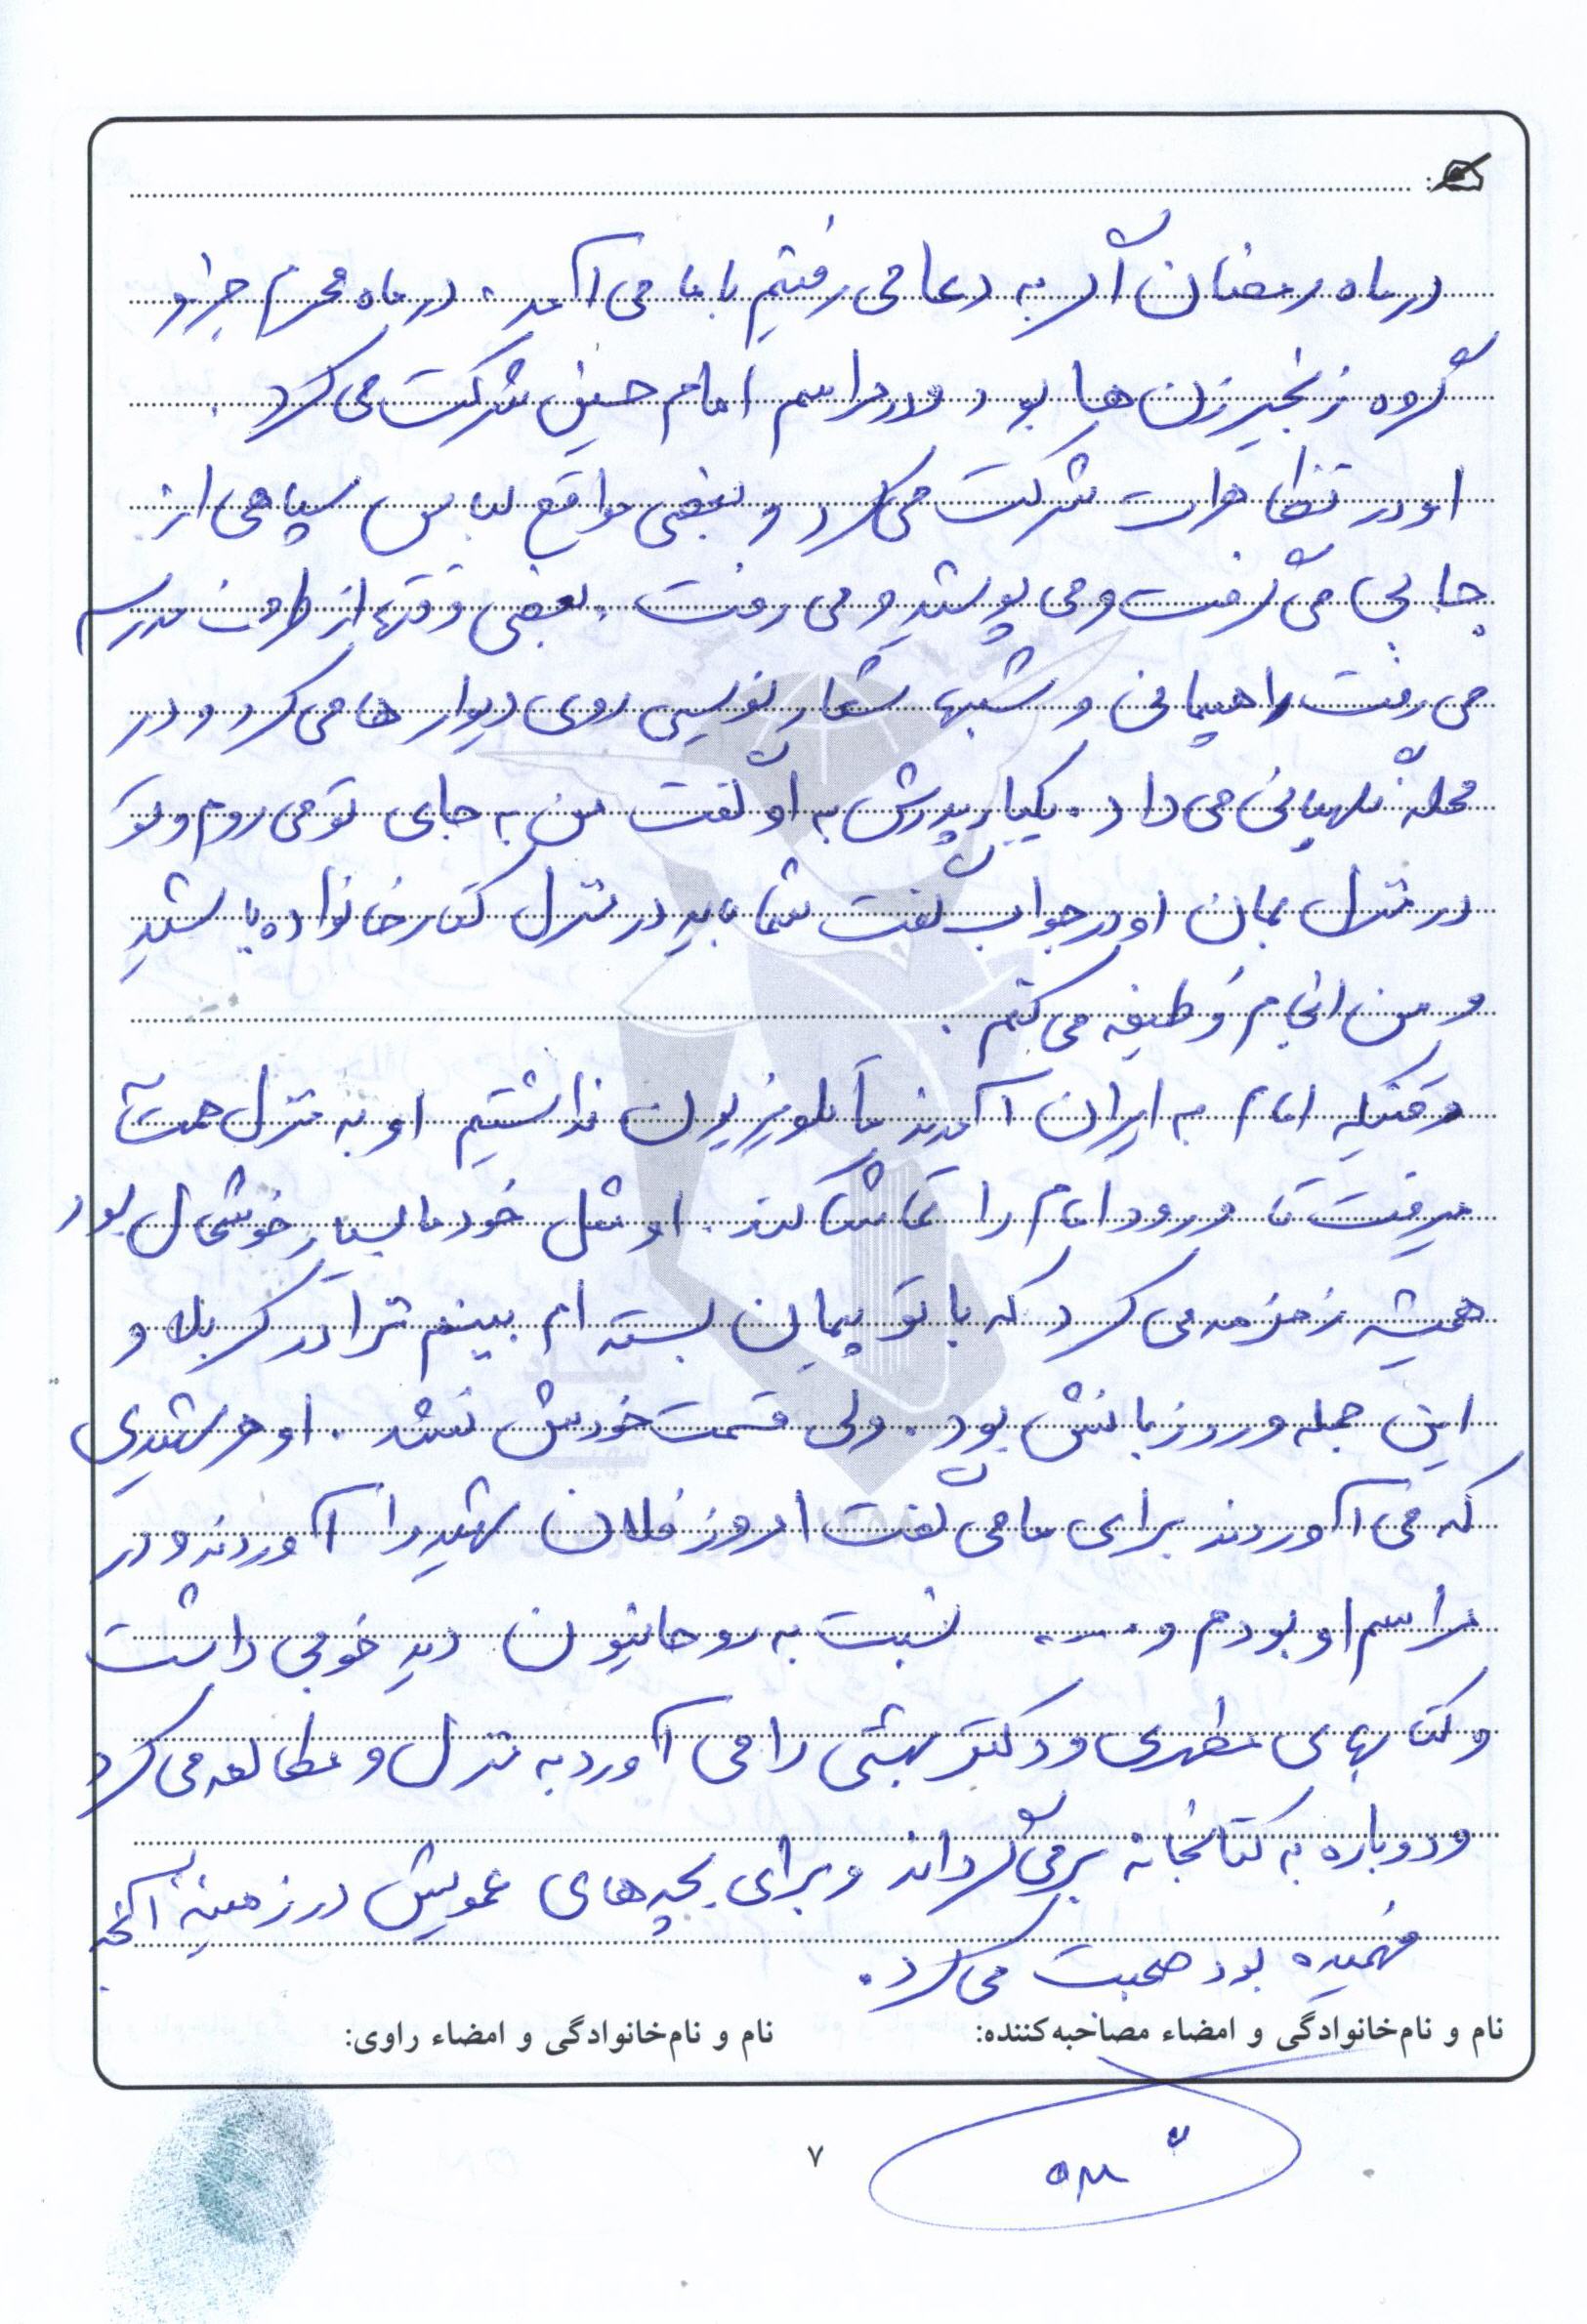 در ماه رمضان اگر به دعا می رفتیم با ما می آمد. در ماه محرم جزو
گروه زنجیر زن ها بود و در مراسم امام حسین شرکت می کرد.
او در تظاهرات شرکت می کرد و بعضی مواقع لباس سپاهی از
جایی می گرفت و می پوشید و می رفت. بعضی وقتها از طرف مدرسه
می رفت راهپیمائی و شبها شعار نویسی روی دیوار ها می کرد و در
محله نگهبانی می داد. یکبار پدرش به او گفت من به جای تو می روم و تو
در منزل بمان او در جواب گفت شما باید در منزل کنار خانواده باشید
و من انجام وظیفه می کنم.
وقتیکه امام به ایران آمدند ما تلویزیون نداشتیم او به منزل همسایه
میرفت تا ورود امام را تماشا کند. او مثل خود ما بسیار خوشحال بود
همیشه زمزمه می کرد که با تو پیمان بسته ام بینم ترا در کربلا و
این جمله ورد زبانش بود. ولی قسمت خودش نشد. او هر شهیدی
که می آوردند برای ما می گفت امروز فلان شهید را آوردند و در
مراسم او بودم و.... نسبت به روحانیون دید خوبی داشت
و کتابهای مطهری و دکتر بهشتی را می آورد به منزل و مطالعه می کرد
و دوباره به کتابخانه برمی گرداند و برای بچه های عمویش در زمینه آنچه
فهمیده بود صحبت می کرد.
نام و نام‌خانوادگی و امضاء مصاحبه‌کننده: نام و نام‌خانوادگی و امضاء راوی:
۷